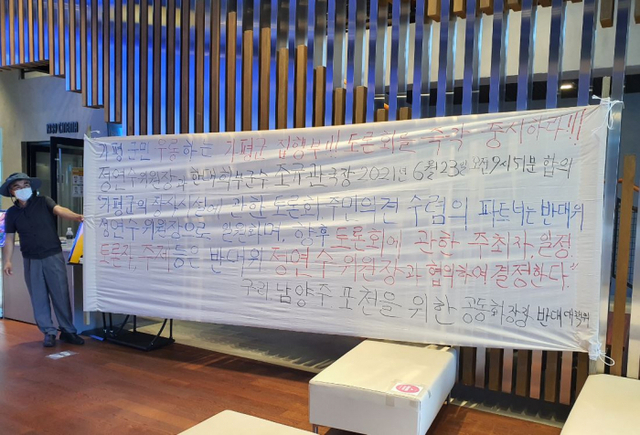 가평군민 우롱하는 가평군 집행부!! 토론회를 즉각 중지하라!!!
정연수위원장과 한대희부군수 조규관국장 2021년 6월 23일 오전9시 51분 합의
가평군의 장사시설에 관한 토론회 주민의견 수렴의 파트너는 반대위
정연수위원장으로 일원화하며, 향후 토론회에 관한 주최자, 일정,
토론자, 주제등은 반대위 정연수위원장과 협의하여 결정한다."
구리 남양주 포천을 위한 공동화장장 반대대책위